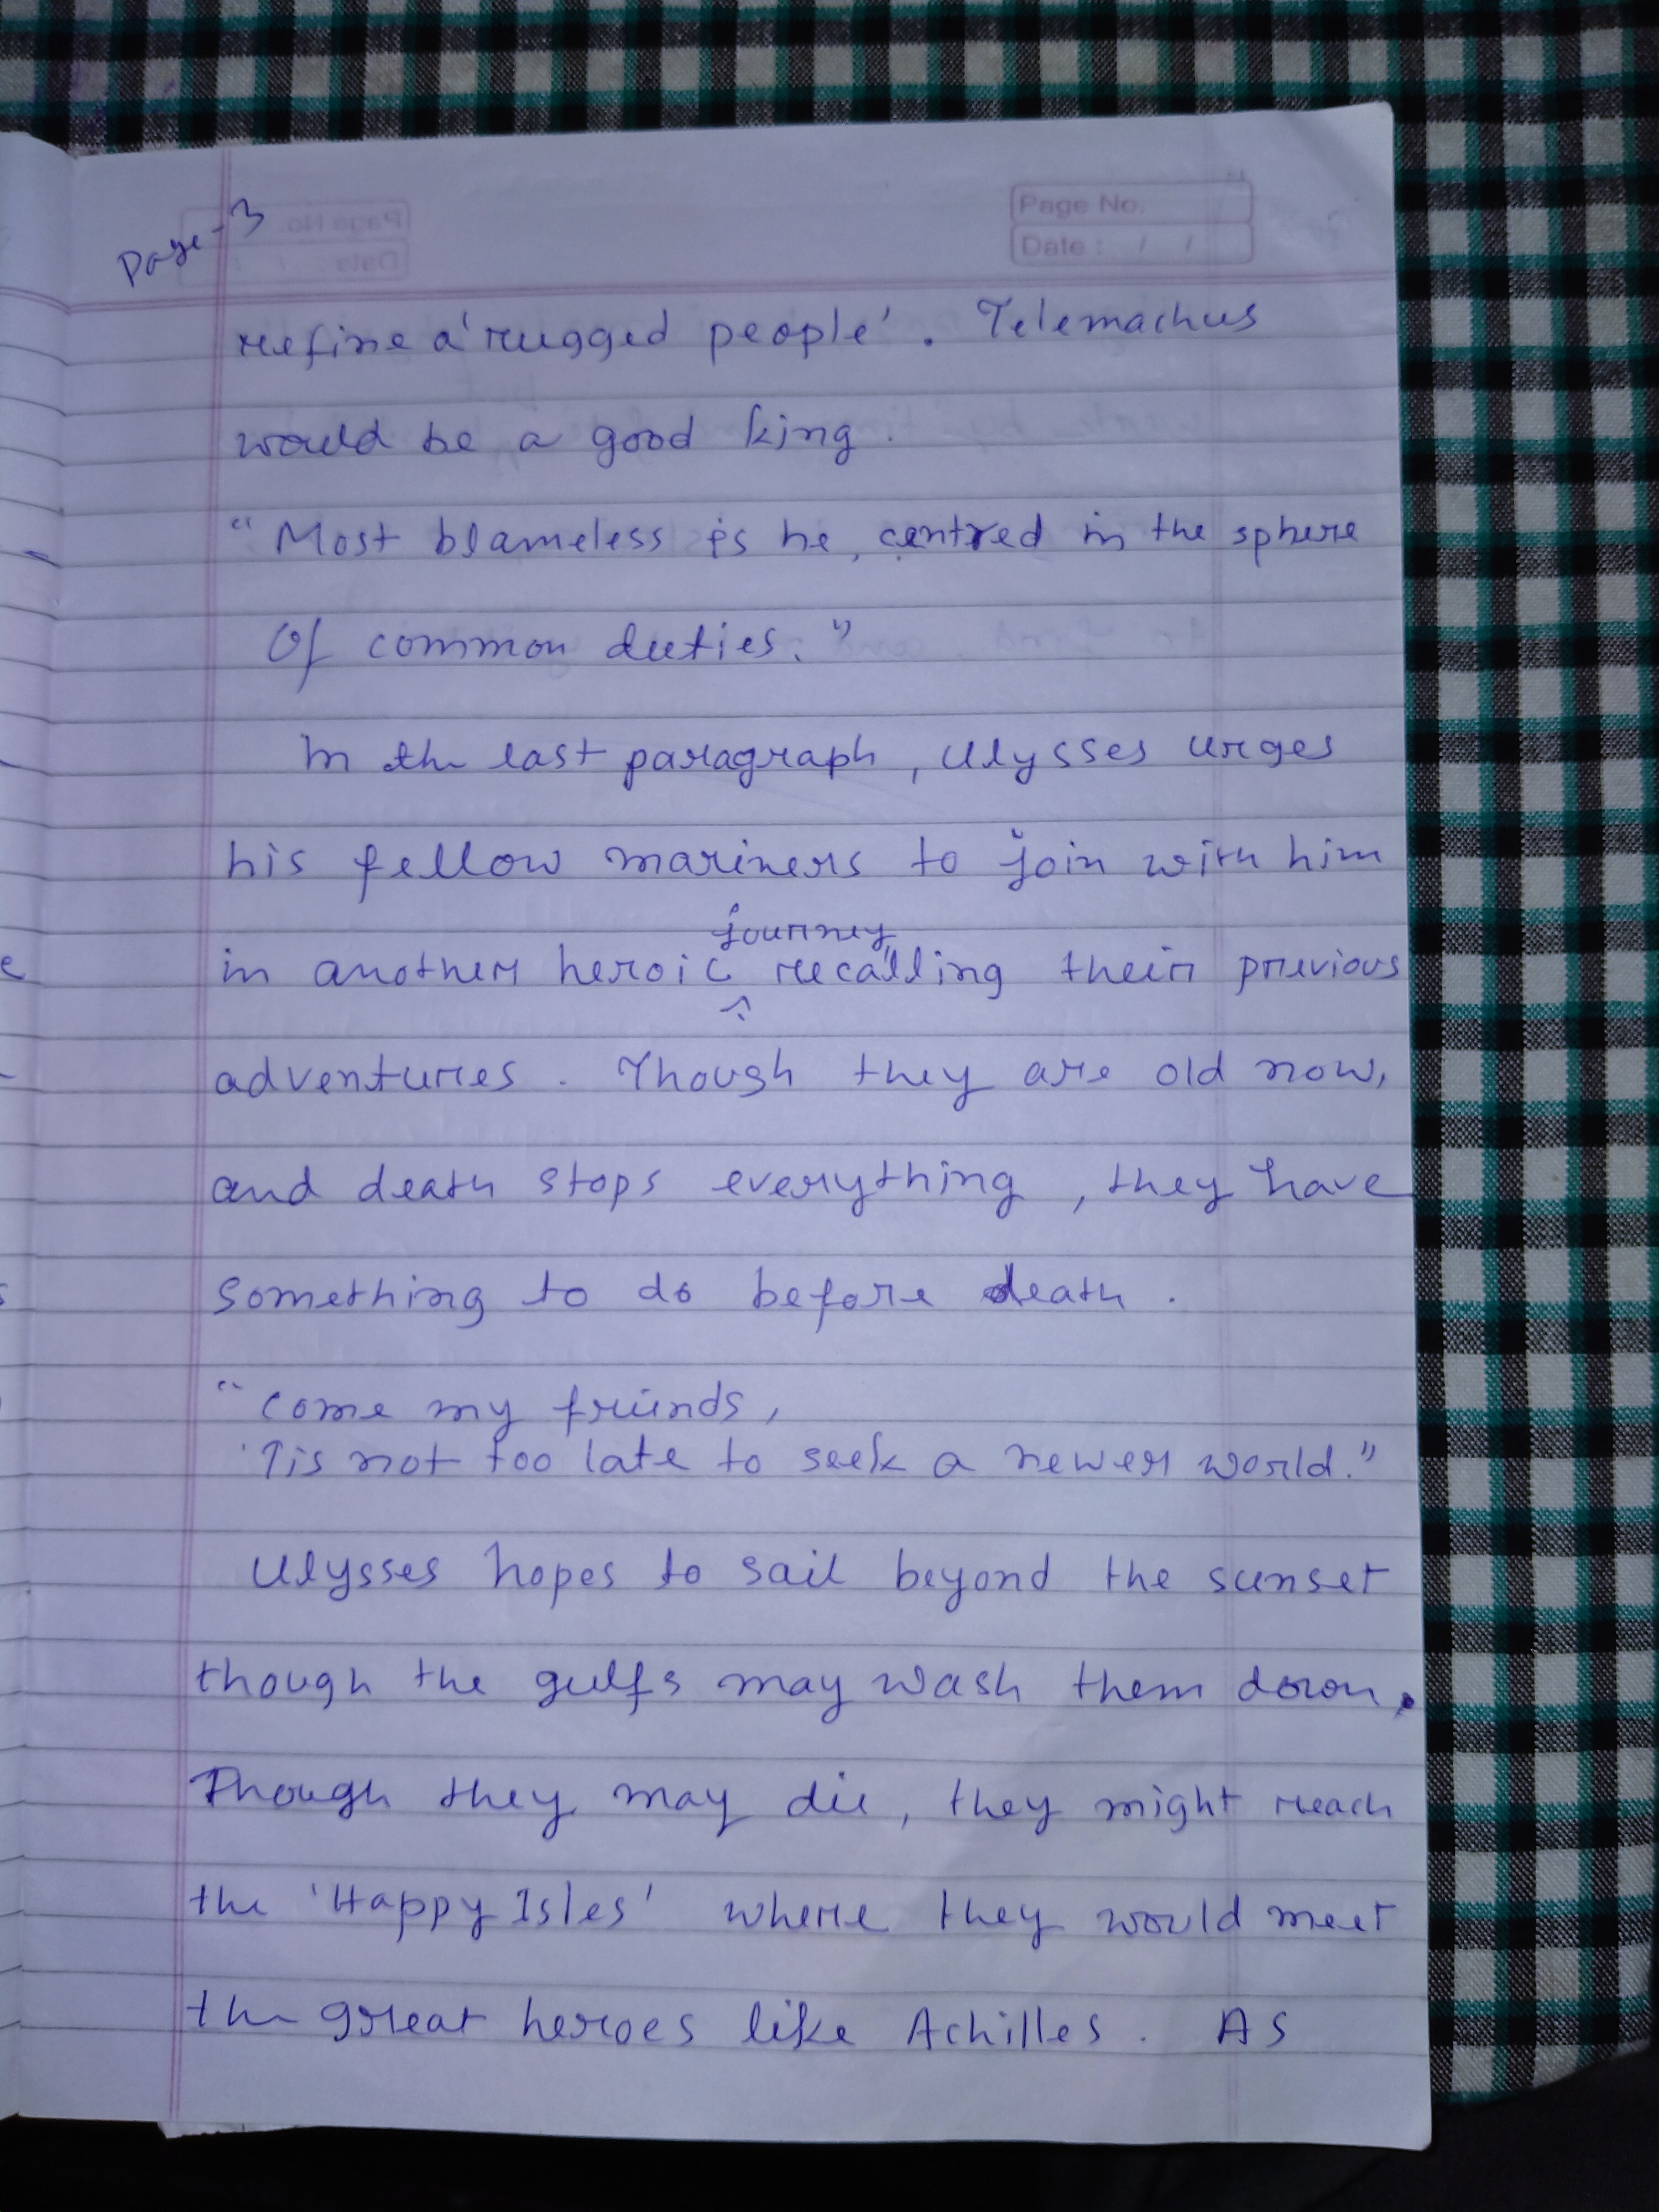 Page-3
Page No.
Date : / /
refine a 'rugged people'. Telemachus
would be a good king.
"Most blameless is he, centred in the sphere
Of common duties."
In the last paragraph, Ulysses urges
his fellow mariners to join with him
journey,
in another heroic ^ recalling their previous
adventures. Though they are old now,
and death stops everything, they have
something to do before death.
"Come my friends,
'Tis not too late to seek a newer world."
Ulysses hopes to sail beyond the sunset
though the gulfs may wash them down.
Though they may die, they might reach
the 'Happy Isles' where they would meet
the great heroes like Achilles. As